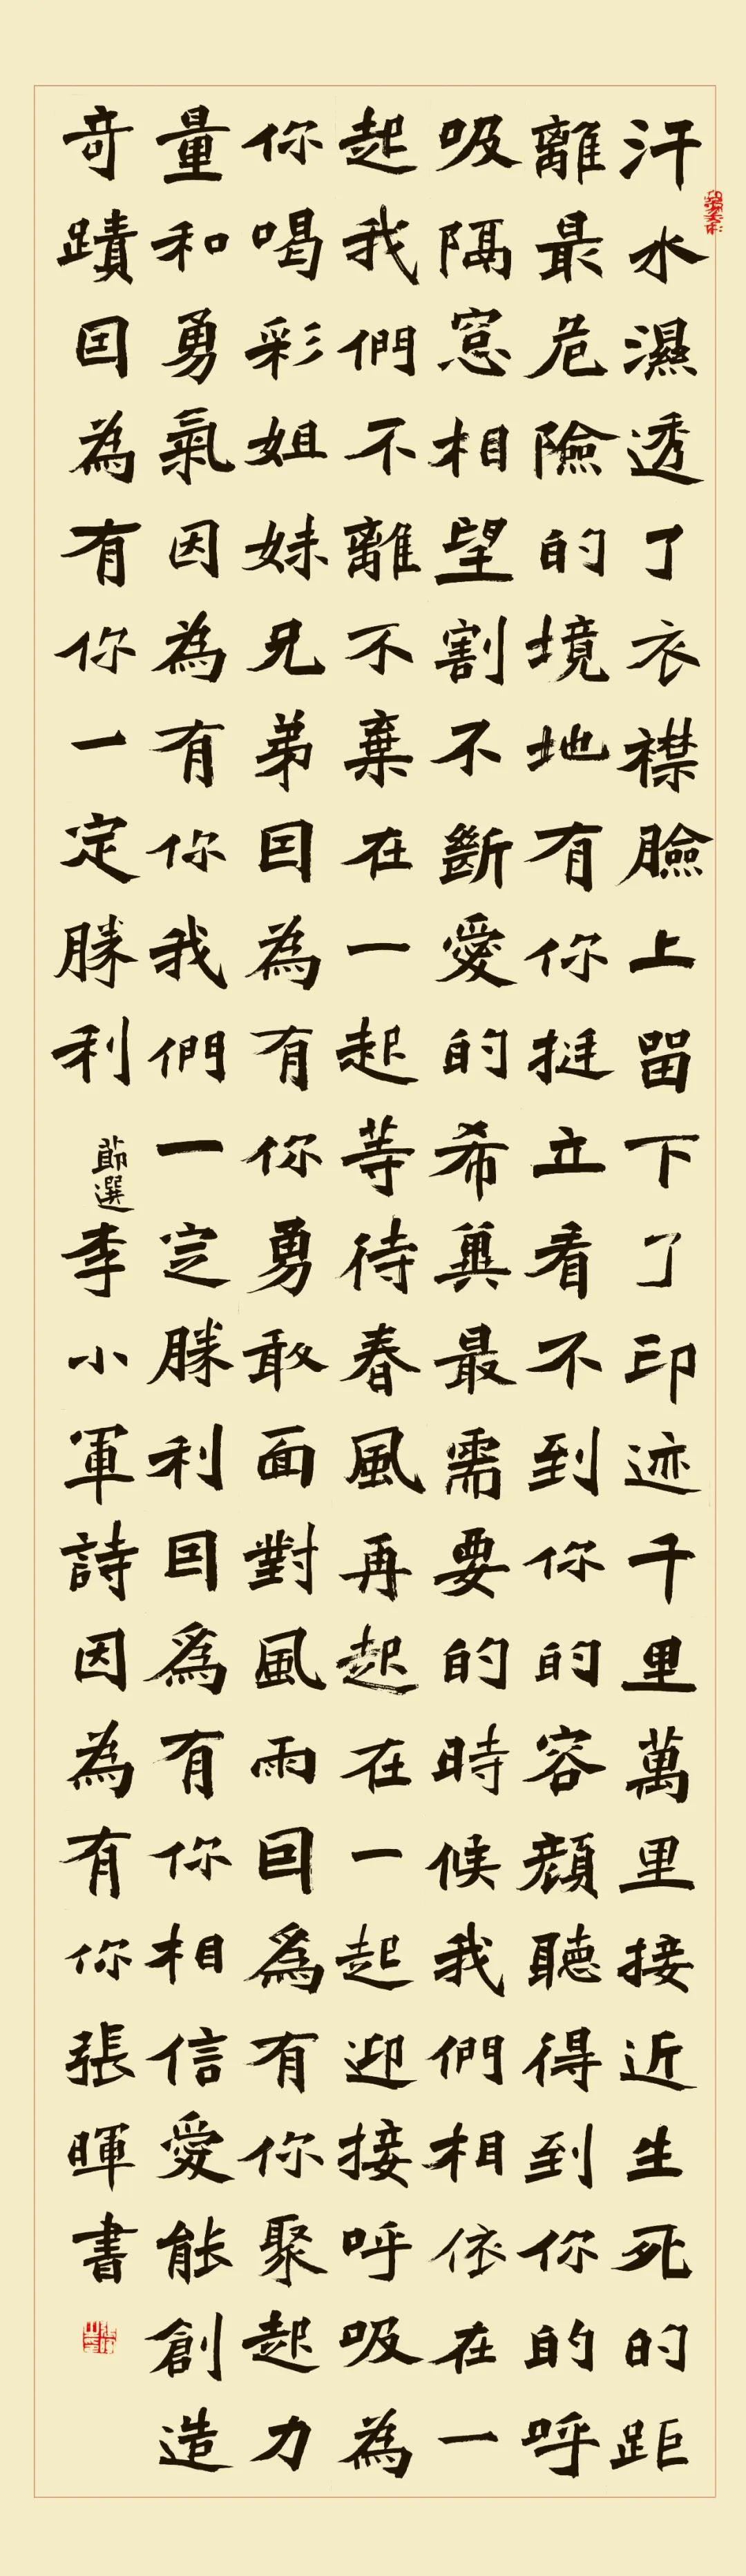 汗水濕透了衣襟臉上留下了印迹千里萬里接近生死的距
離最危險的境地有你挺立看不到你的容顔聽得到你的呼
吸隔窓相望割不斷愛的希兾最需要的時候我們相依在一
起我們不離不棄在一起等待春風再起在一起迎接呼吸為
你喝彩姐妹兄弟囙為有你勇敢面對風雨囙爲有你聚起力
量和勇氣因為有你我們一定勝利囙爲有你相信愛能創造
奇蹟囙為有你一定勝利
節選
李小軍詩因為有你張暉書